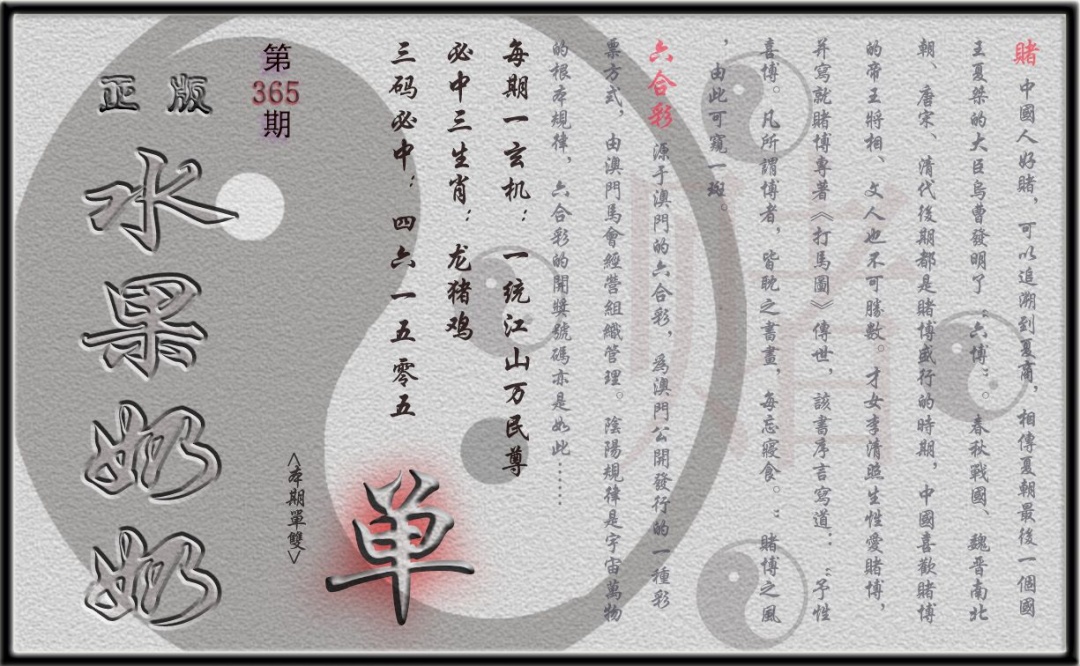 賭 中國人好賭，可以追溯到夏商，相傳夏朝最後一個國
王夏桀的大臣烏曹發明了“六博”。春秋戰國、魏晉南北
朝、唐宋、清代後期都是賭博盛行的時期，中國喜歡賭博
的帝王將相、文人也不可勝數。才女李清照生性愛賭博，
并寫就賭博專著《打馬圖》傳世，該書序言寫道：“予性
喜博。凡所謂博者，皆耽之晝畫，每忘寢食。”賭博之風
，由此可窺一斑。
六合彩 源于澳門的六合彩，為澳門公開發行的一種彩
票方式，由澳門馬會經營組織管理。陰陽規律是宇宙萬物
的根本規律，六合彩的開獎號碼亦是如此……
每期一玄机：一统江山万民尊
必中三生肖：龙猪鸡
三码必中：四六一五零五
单
<本期單雙>
第
365
期
正版
水果奶奶
赌